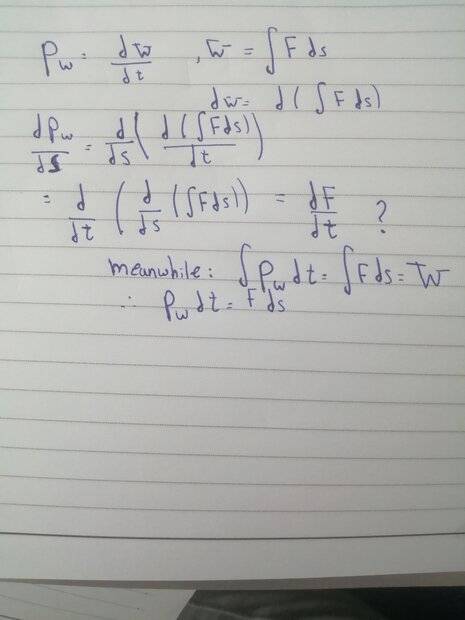 P_w = dw/dt , W = ∫F ds
dw = d(∫F ds)
dP_w/ds = d/ds (d(∫Fds)/dt)
= d/dt (d/ds (∫Fds)) = dF/dt ?
meanwhile: ∫P_w dt = ∫F ds = W
∴ P_w dt = F ds